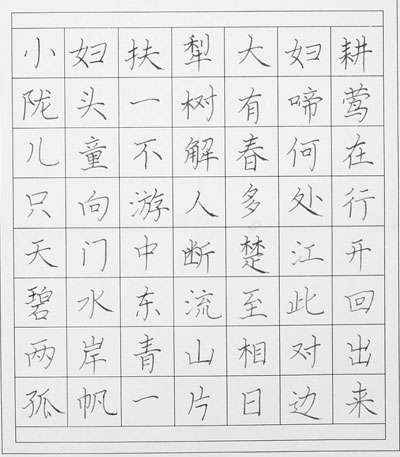 小妇扶犁大妇耕
陇头一树有啼莺
儿童不解春何在
只向游人多处行
天门中断楚江开
碧水东流至此回
两岸青山相对出
孤帆一片日边来